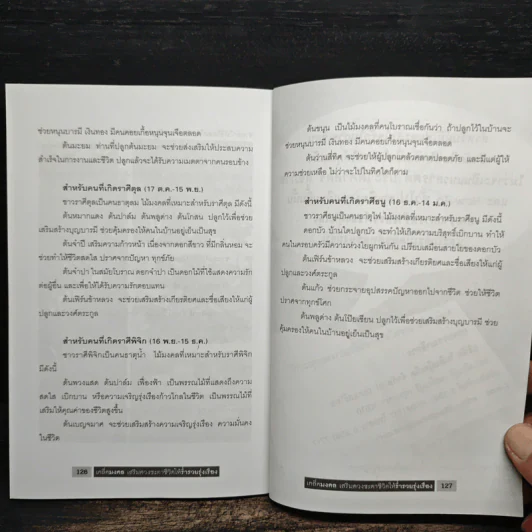 ช่วยหนุนบารมี เงินทอง มีคนคอยเกื้อหนุนจุนเจือตลอด
ต้นมะยม ท่านที่ปลูกต้นมะยม จะช่วยส่งเสริมให้ประสบความ
สำเร็จในการงานและชีวิต ปลูกแล้วจะได้รับความเมตตาจากคนรอบข้าง
สำหรับคนที่เกิดราศีตุล (17 ต.ค.-15 พ.ย.)
ชาวราศีตุลเป็นคนธาตุลม ไม้มงคลที่เหมาะสำหรับราศีตุล มีดังนี้
ต้นหมากแดง ต้นปาล์ม ต้นพลูด่าง ต้นโกสน ปลูกไว้เพื่อช่วย
เสริมสร้างบุญบารมี ช่วยคุ้มครองให้คนในบ้านอยู่เย็นเป็นสุข
ต้นจำปี เสริมความก้าวหน้า เนื่องจากดอกสีขาว ที่มีกลิ่นหอม จะ
ช่วยทำให้ชีวิตสดใส ปราศจากปัญหา ทุกข์ภัย
ต้นจำปา ในสมัยโบราณ ดอกจำปา เป็นดอกไม้ที่ใช้แสดงความรัก
ต่อผู้อื่น และเพื่อให้ได้รับความรักตอบแทน
ต้นเฟิร์นข้าหลวง จะช่วยเสริมสร้างเกียรติยศและชื่อเสียงให้แก่ผู้
ปลูกและวงศ์ตระกูล
สำหรับคนที่เกิดราศีพิจิก (16 พ.ย.-15 ธ.ค.)
ชาวราศีพิจิกเป็นคนธาตุน้ำ ไม้มงคลที่เหมาะสำหรับราศีพิจิก
มีดังนี้
ต้นพวงแสด ต้นปาล์ม เฟื่องฟ้า เป็นพรรณไม้ที่แสดงถึงความ
สดใส เบิกบาน หรือความเจริญรุ่งเรืองก้าวไกลในชีวิต เป็นพรรณไม้ที่
เสริมให้คุณค่าของชีวิตสูงขึ้น
ต้นเบญจมาศ จะช่วยเสริมสร้างความเจริญรุ่งเรือง ความมั่นคง
ในชีวิต
126 เกร็ดมงคล เสริมดวงชะตาชีวิตให้ร่ำรวยรุ่งเรือง
ต้นขนุน เป็นไม้มงคลที่คนโบราณเชื่อกันว่า ถ้าปลูกไว้ในบ้านจะ
ช่วยหนุนบารมี เงินทอง มีคนคอยเกื้อหนุนจุนเจือตลอด
ต้นว่านสี่ทิศ จะช่วยให้ผู้ปลูกแคล้วคลาดปลอดภัย และมีแต่ผู้ให้
ความช่วยเหลือ ไม่ว่าจะไปในทิศใดก็ตาม
สำหรับคนที่เกิดราศีธนู (16 ธ.ค.-14 ม.ค.)
ชาวราศีธนูเป็นคนธาตุไฟ ไม้มงคลที่เหมาะสำหรับราศีธนู มีดังนี้
ต้นบัว บ้านใดปลูกบัว จะทำให้เกิดความบริสุทธิ์เบิกบาน ทำให้
คนในครอบครัวมีความห่วงใยผูกพันกัน เปรียบเสมือนสายใยของดอกบัว
ต้นเฟิร์นข้าหลวง จะช่วยเสริมสร้างเกียรติยศและชื่อเสียงให้แก่ผู้
ปลูกและวงศ์ตระกูล
ต้นแก้ว ช่วยกระจายอุปสรรคปัญหาออกไปจากชีวิต ช่วยให้ชีวิต
ปราศจากทุกข์โศก
ต้นพลูด่าง ต้นโป๊ยเซียน ปลูกไว้เพื่อช่วยเสริมสร้างบุญบารมี ช่วย
คุ้มครองให้คนในบ้านอยู่เย็นเป็นสุข
เกร็ดมงคล เสริมดวงชะตาชีวิตให้ร่ำรวยรุ่งเรือง 127